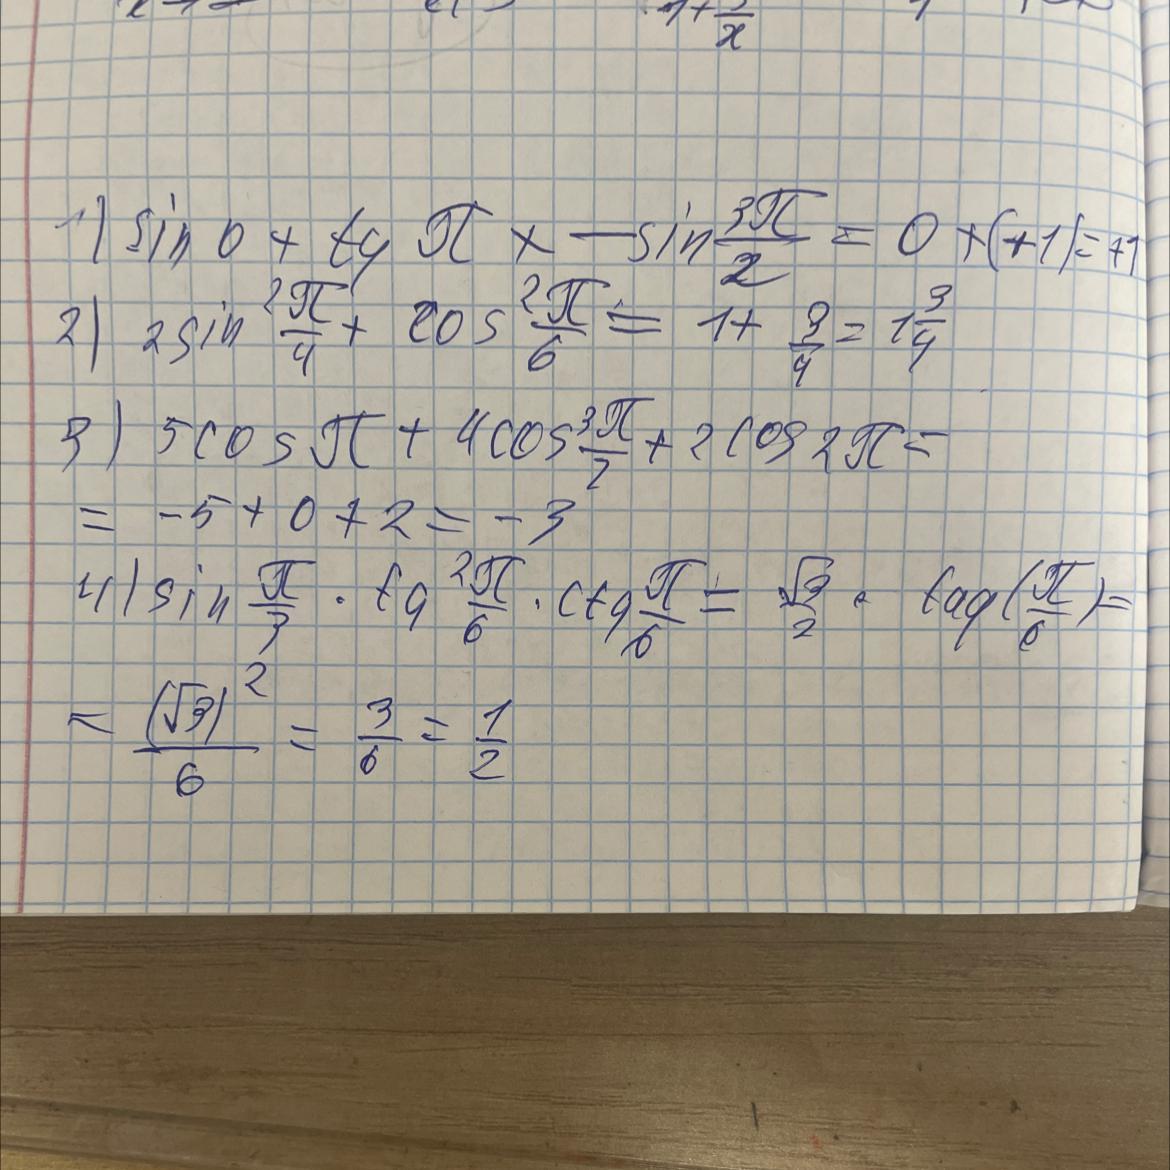 1) sin 0 + tg π + — sin 3π/2 = 0 + (+1) = +1
2) 2 sin² π/4 + cos² π/6 = 1 + 3/4 = 1 3/4
3) 5 cos π + 4 cos 3π/2 + 2 cos 2π =
= -5 + 0 + 2 = -3
4) sin π/3 · tg² π/6 · ctg π/6 = √3/2 · tag (π/6) =
= (√3)²/6 = 3/6 = 1/2